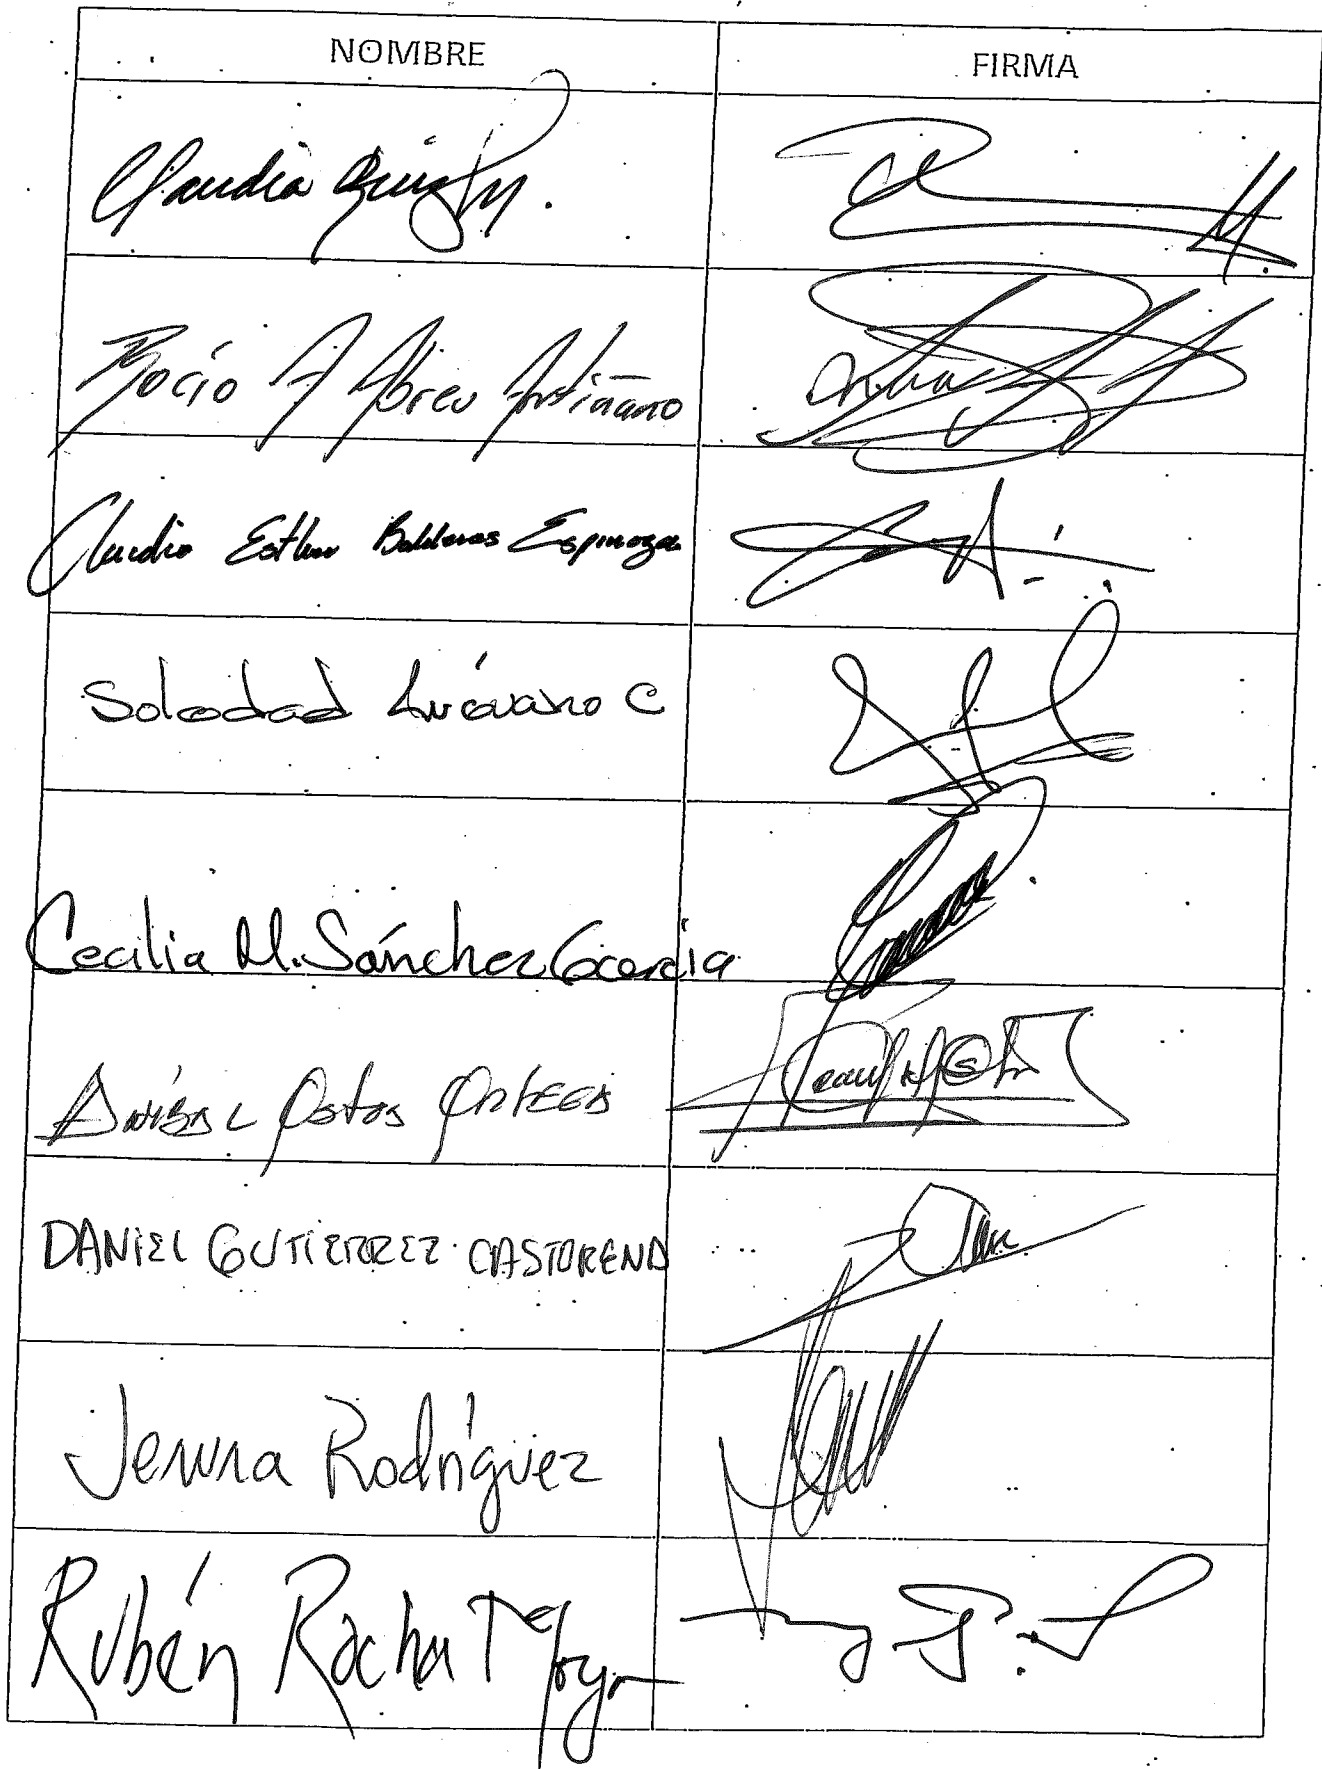 NOMBRE
FIRMA
Claudia Ruiz M.
Rocío A Abreu Artiñano
Claudia Esther Balderas Espinoza
Soledad Luévano C
Cecilia M. Sánchez García
Aníbal Ostoa Ortega
DANIEL GUTIERREZ CASTORENA
Jesusa Rodríguez
Rubén Rocha Moya